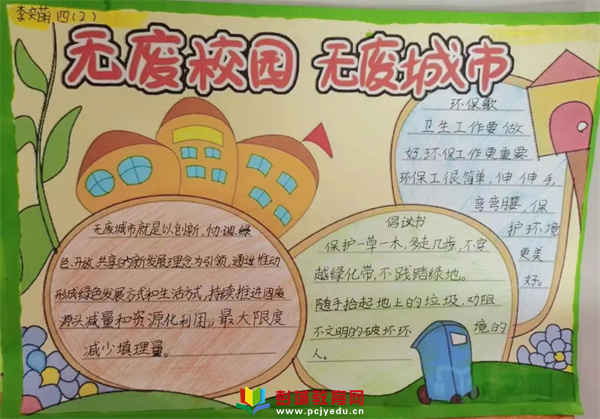 李奕萌 四(2)
无废校园 无废城市
环保歌
卫生工作要做
好,环保工作更重要
环保工很简单,伸伸手,
弯弯腰,保
护环境
更美
好。
无废城市就是以创新、协调、绿
色、开放、共享的新发展理念为引领,通过推动
形成绿色发展方式和生活方式,持续推进固废
源头减量和资源化利用,最大限度
减少填埋量。
倡议书
保护一草一木,多走几步,不穿
越绿化带,不践踏绿地。
随手拾起地上的垃圾,劝阻
不文明的破坏环境的
人。
耐旭教育网
www.pcjyedu.cn